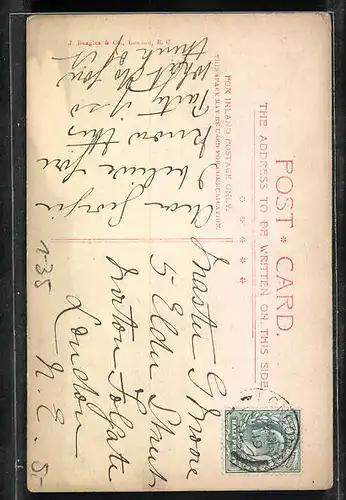 POST CARD.
THE ADDRESS TO BE WRITTEN ON THIS SIDE.
FOR INLAND POSTAGE ONLY.
THIS SPACE MAY BE USED FOR COMMUNICATION.
J. Beagles & Co., London, E. C.
Dear Georgie
I believe you
know this
Party if so
what do you
think of it
Master G Moore
5 Elder Street
Norton Folgate
London
N. E.
1-35